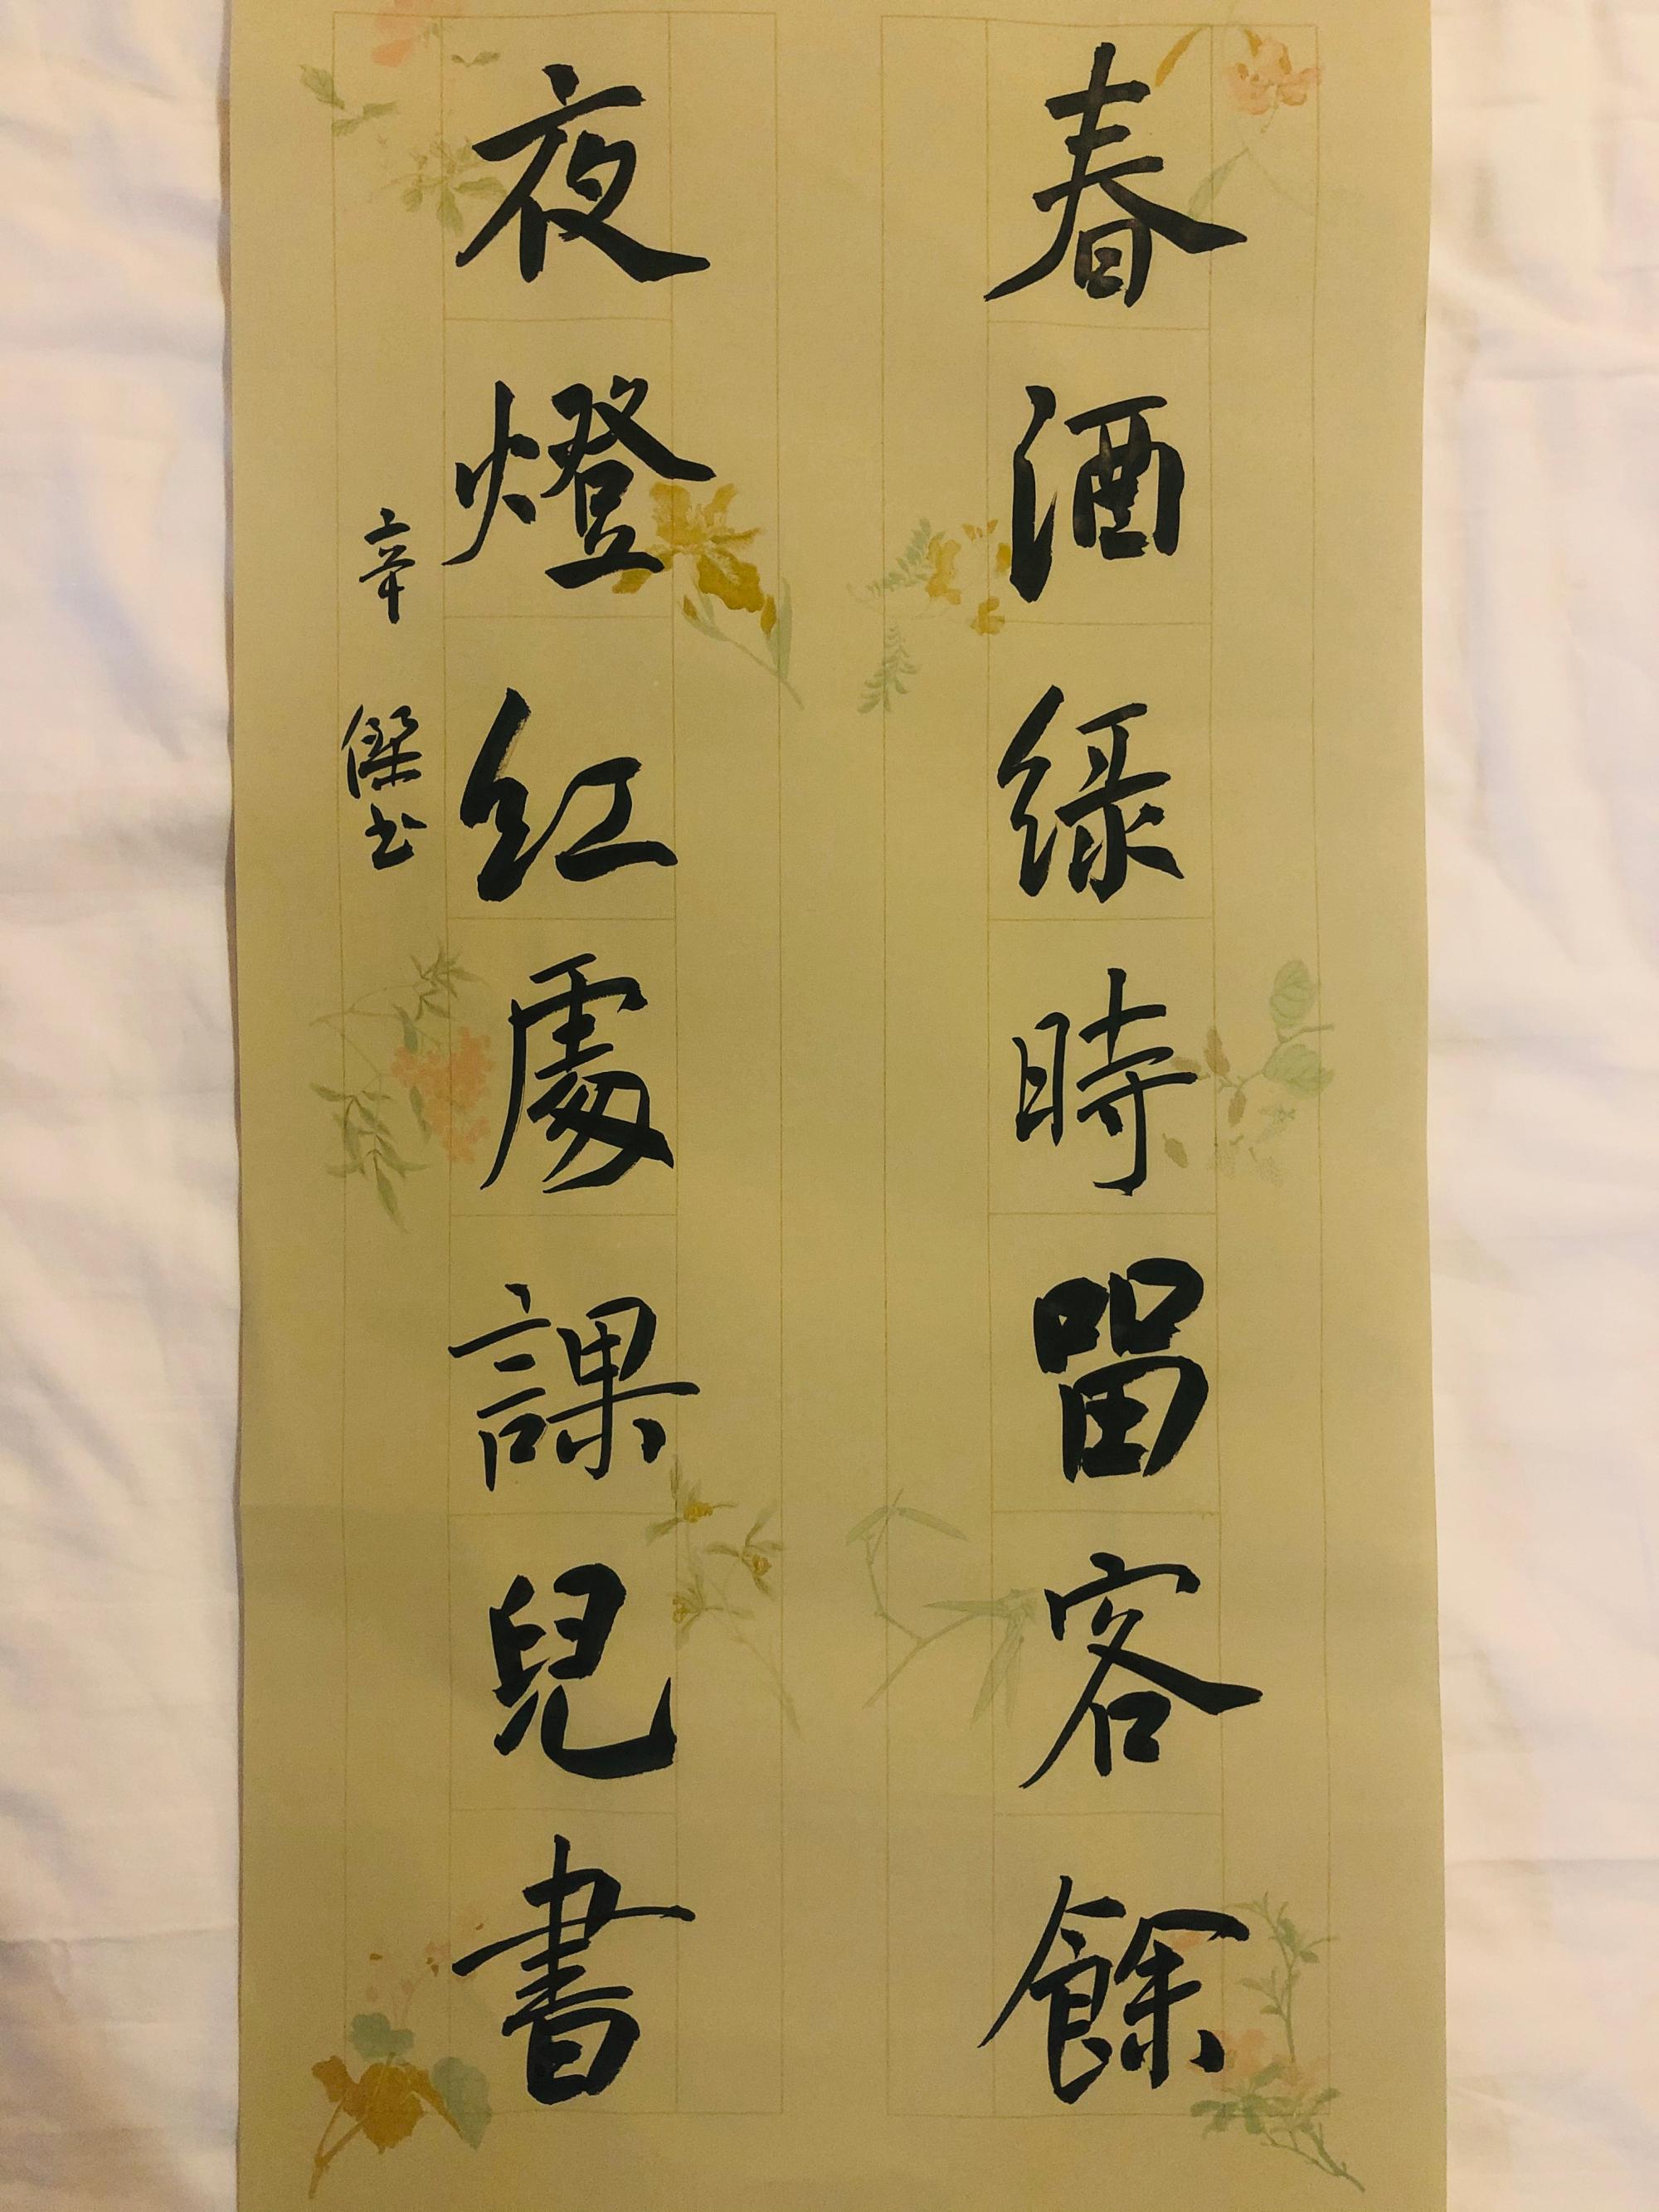 春酒綠時留客餘
夜燈紅處課兒書
辛 傑書